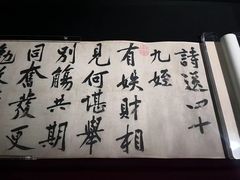 詩送四十
九姪
有妷財相
見何堪舉
別觴共期
同奮發更